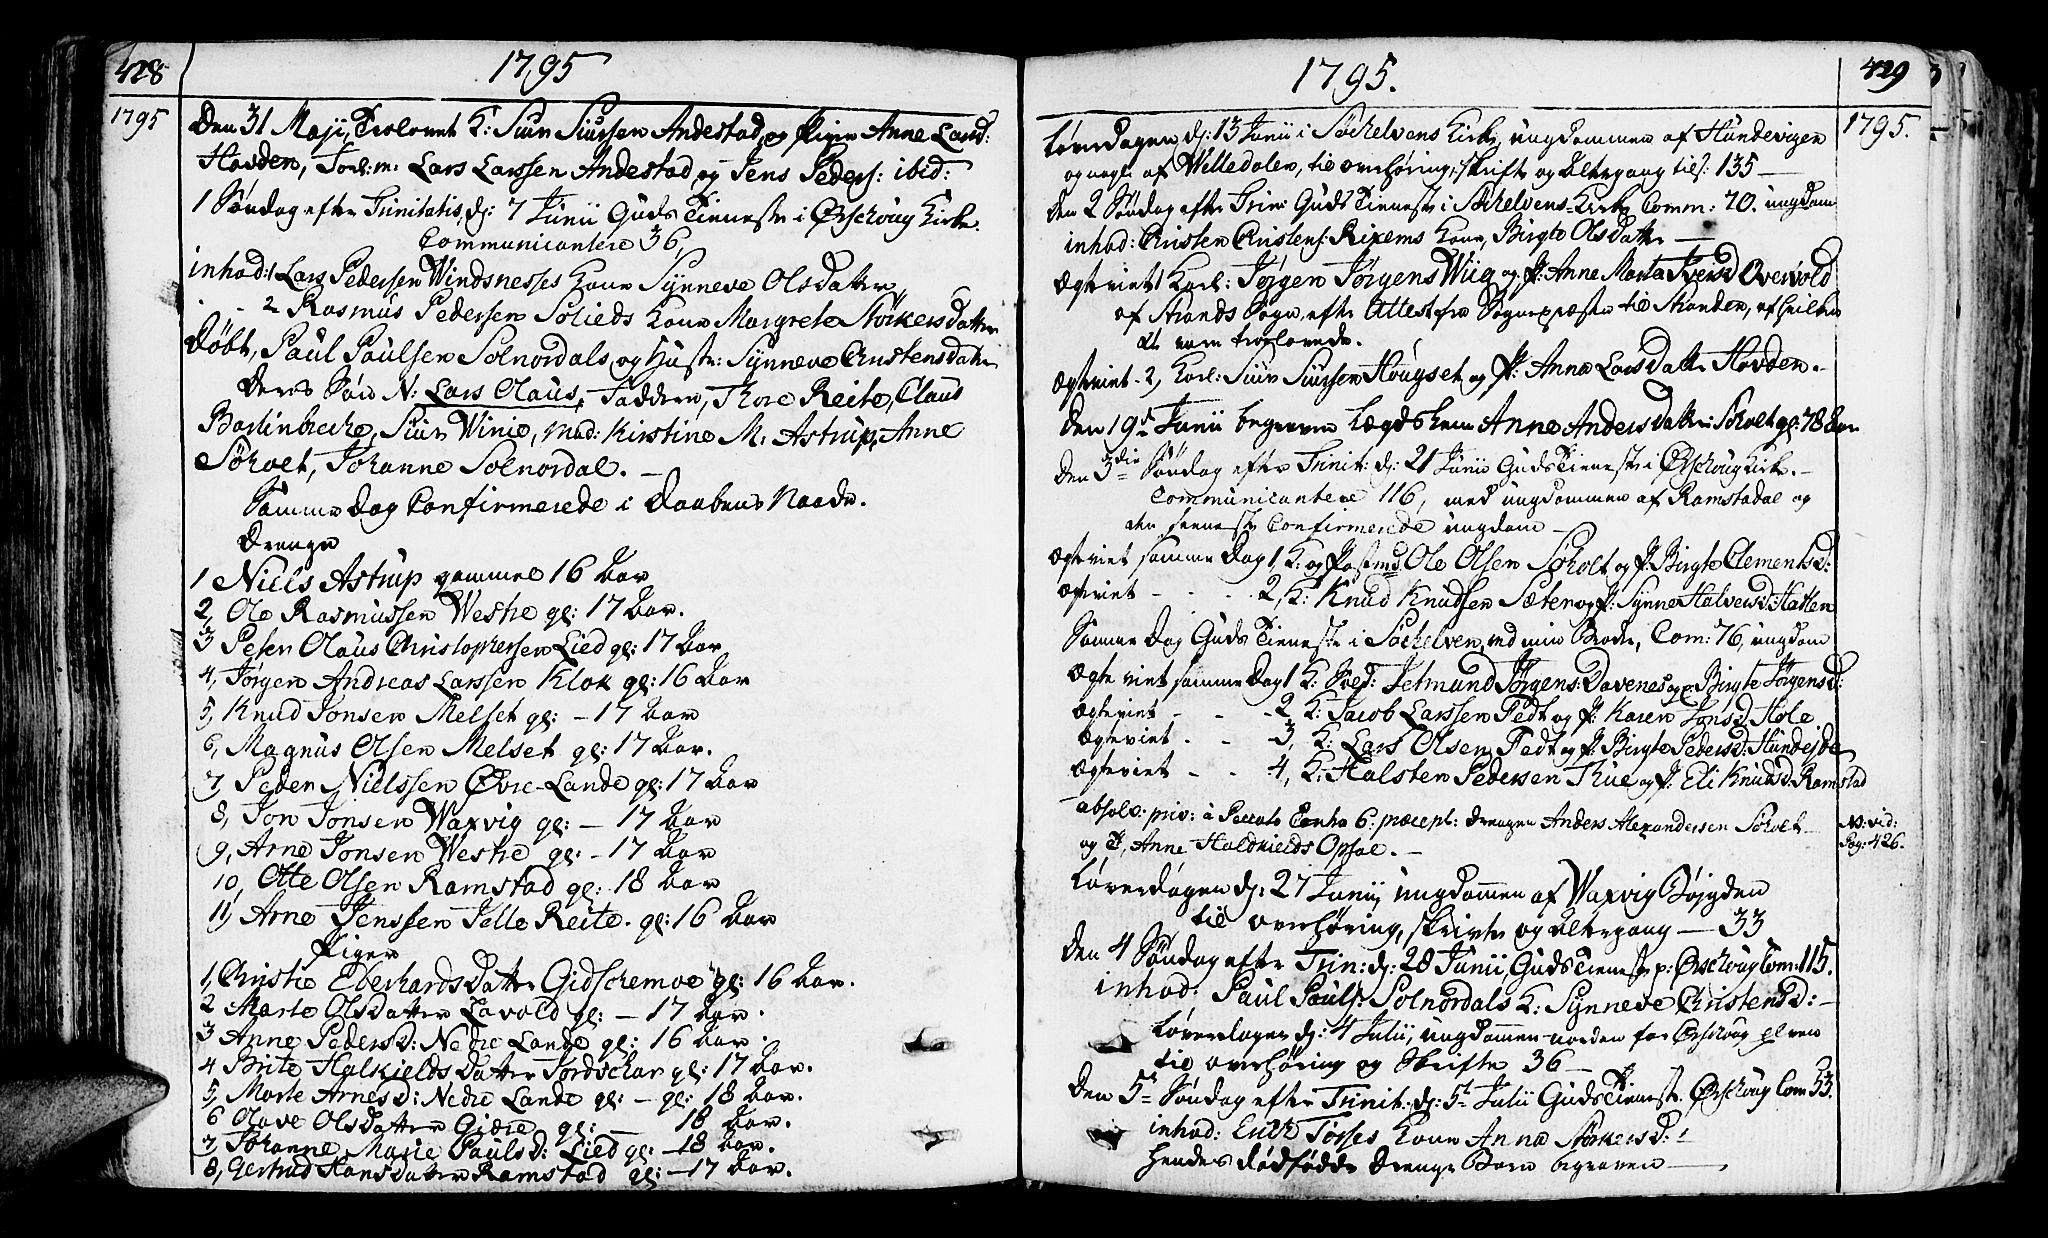 428
1795
1795
Den 31 Maji, Trolovet K: Siur Siurssen Andestad, og Pigen Anne Larsd:
Hovden, Forl:m: Lars Larssen Andestad og Jens Peders: ibid:
1 Søndag efter Trinitatis, d: 7 Junii Guds Tieneste i Ørschoug Kirke.
Communicantere 36,
inhod: 1 Lars Pedersen Windsnesses Kone Synneve Olsdatter,
2 Rasmus Pedersen Solieds Kone Margrete Størkersdatter
Døbt, Paul Paulsen Solnørdals og Hustr: Synneve Christensdatter
Deres Søn N: Lars Olaus, Faddere, Thore Reite, Claus
Siur Winie, Mad: Kirstine M. Astrup, Anne
Søholt, Johanne Solnørdal. —
Samme Dag Confirmerede i Daabens Naade.
Drenge
1 Niels Astrup gammel 16 Aar
2, Ole Rasmussen Westre gl: 17 Aar.
3 Peter Olaus Christophersen Lied gl: 17 Aar
4, Jørgen Andreas Larssen Klok gl: 16 Aar
5, Knud Jonsen Melset gl: – 17 Aar
6, Magnus Olsen Melset gl: 17 Aar.
7, Peder Nielssen Øvre-Lande gl: 17 Aar
8, Jon Jonsen Waxvig gl: – 17 Aar
9, Arne Jonsen Westre gl: – 17 Aar
10, Otte Olsen Ramstad gl: 18 Aar
11, Arne Jenssen Jelle Reite. gl: 16 Aar
Piger
1, Christie Eberhardsdatter Gidschemoe gl: 16 Aar.
2 Marte Olsdatter Lavold gl: – 17 Aar.
3 Anne Pedersd: Nedre Lande gl: 16 Aar.
4 Brite Halkieldsdatter gl: 17 Aar.
5, Marte Arnesd: Nedre Lande gl: – gl: 18 Aar.
6 Olave Olsdatter gl: 18 Aar.
7, Johanne Marie Paulsd: Lied gl: – 18 Aar.
8, Gertrud Hansdatter Ramstad gl: – 17 Aar.
1795.
429
1795.
Løverdagen d: 13 Junii i Søchelvens Kirke, ungdommen af Hundevigen
og nogle af Welledalen, til overhøring, skrifte og Altergang tils: 135 —
Den 2 Søndag efter Trin: Guds Tieneste i Søchelvens Kirke Comm: 70. ungdom
inhod: Christen Christens: Rixems Kone, Birgte Olsdatter —
Ægteviet 1 Karl: Jørgen Jørgens Wiig og P: Anne Marta Iversd Overvold
af Strands Sogn, efter Attest fra Sognepræsten til Stranden, af hvilken
de vare trolovede.
Ægteviet – 2, Karl: Siur Siurssen Hougset og P: Anna Larsdatter Hovden. –
Den 19de Junii begraven Lægdskone Anne Andersdatter Søholt gl: 78 Aar
Den 3die Søndag efter Trinit: d: 21 Junii Guds Tieneste i Ørschoug Kirke. –
Communicantere 116, med ungdommen af Ramstadal og
den seeneste Confirmerede ungdom —
Ægteviet samme Dag 1 K: og Ole Olsen Søholt og P: Birgte Clementsd:
Ægteviet – – – 2, K: Knud Knudsen Sæter og P: Synne Halversd: Hatten
Samme Dag Guds Tieneste i Søchelven, ved min Broder, Com: 76, ungdom
Ægteviet samme Dag 1 K: Jetmund Jørgens: Davenes og P: Birgte Jørgensd:
Ægteviet – – – 2 K: Jacob Larssen Fedt og P: Karen Jonsd: Hole
Ægteviet – – – 3, K: Lars Olsen Fedt og P: Birgte Pedersd: Hundejde
Ægteviet – – – 4, K: Halsten Pedersen Thue og P: Eli Knudsd: Ramstad
absolv: priv: a Peccato Contra 6: præcept: drengen Anders Alexandersen Søholt
og P, Anne Haldkields Opsal. —
NB: vid:
Pag: 426.
Løverdagen d: 27 Junii, ungdommen af Waxvig Bøjgden
til overhøring, skrifte og Altergang — 33
Den 4 Søndag efter Trin: d: 28 Junii, Guds Tieneste p: Ørschoug Com: 115.
inhod: Paul Pauls: Solnørdals K: Synneve Christensd: –
Løverdagen d: 4 Julii, ungdommen norden for Ørschoug
til overhøring og Skrifte 36 —
Den 5te Søndag efter Trinit: d: 5te Julii Guds Tieneste Ørschoug Com 53.
inhod: Kone Anna Størkersd:
hendes dødfødde Drenge Barn begraven —